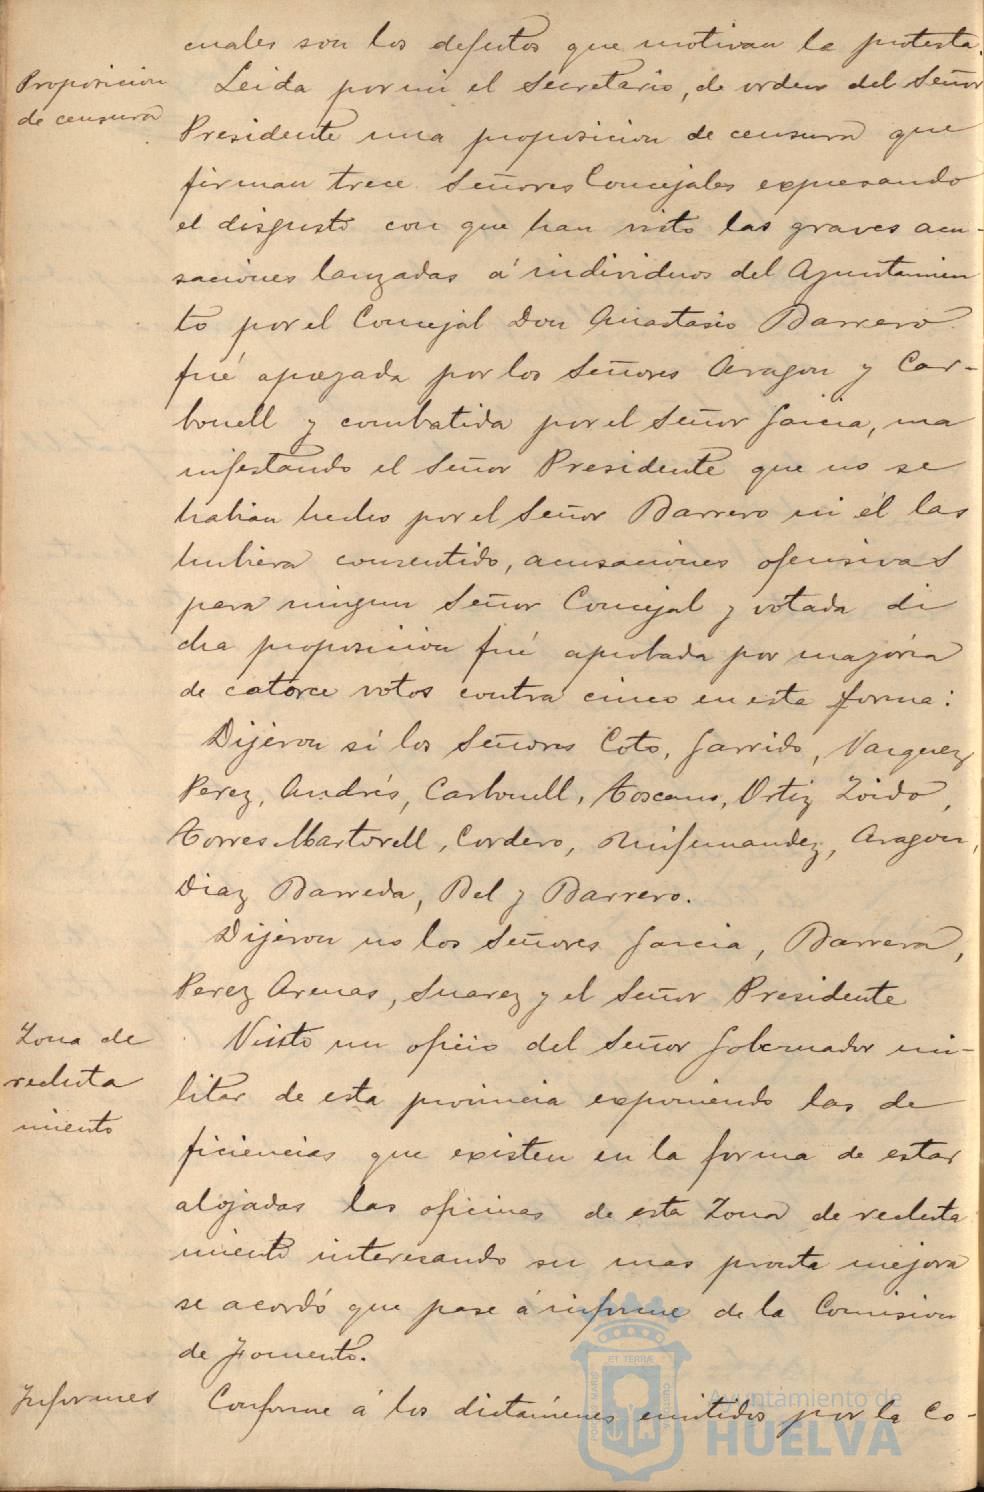 cuales son los defectos que motivan la protesta.
Proposicion
de censura
Leida por mi el Secretario, de orden del Señor
Presidente una proposicion de censura que
firman trece Señores Concejales expresando
el disgusto con que han visto las graves acu-
saciones lanzadas á individuos del Ayuntamien
to por el Concejal Don Anastasio Barrero
fué apoyada por los Señores Aragon y Car-
bonell y combatida por el Señor Garcia, ma
nifestando el Señor Presidente que no se
habian hecho por el Señor Barrero ni él las
hubiera consentido, acusaciones ofensivas
para ningun Señor Concejal y votada di
cha proposicion fué aprobada por mayoria
de catorce votos contra cinco en esta forma:
Dijeron si los Señores Coto, Garrido, Vazquez
Perez, Andrés, Carbonell, Toscano, Ortiz Zoido,
Torres Martorell, Cordero, Aragon,
Diaz Barreda, Bel y Barrero.
Dijeron no los Señores Garcia, Barrera,
Perez Arenas, Suarez y el Señor Presidente
Zona de
recluta
miento
Visto un oficio del Señor Gobernador mi-
litar de esta provincia exponiendo las de
ficiencias que existen en la forma de estar
alojadas las oficinas de esta Zona de recluta
miento interesando su mas pronta mejora
se acordó que pase á informe de la Comision
de Fomento.
Informes
Conforme á los dictámenes emitidos por la Co-
Ayuntamiento de
HUELVA